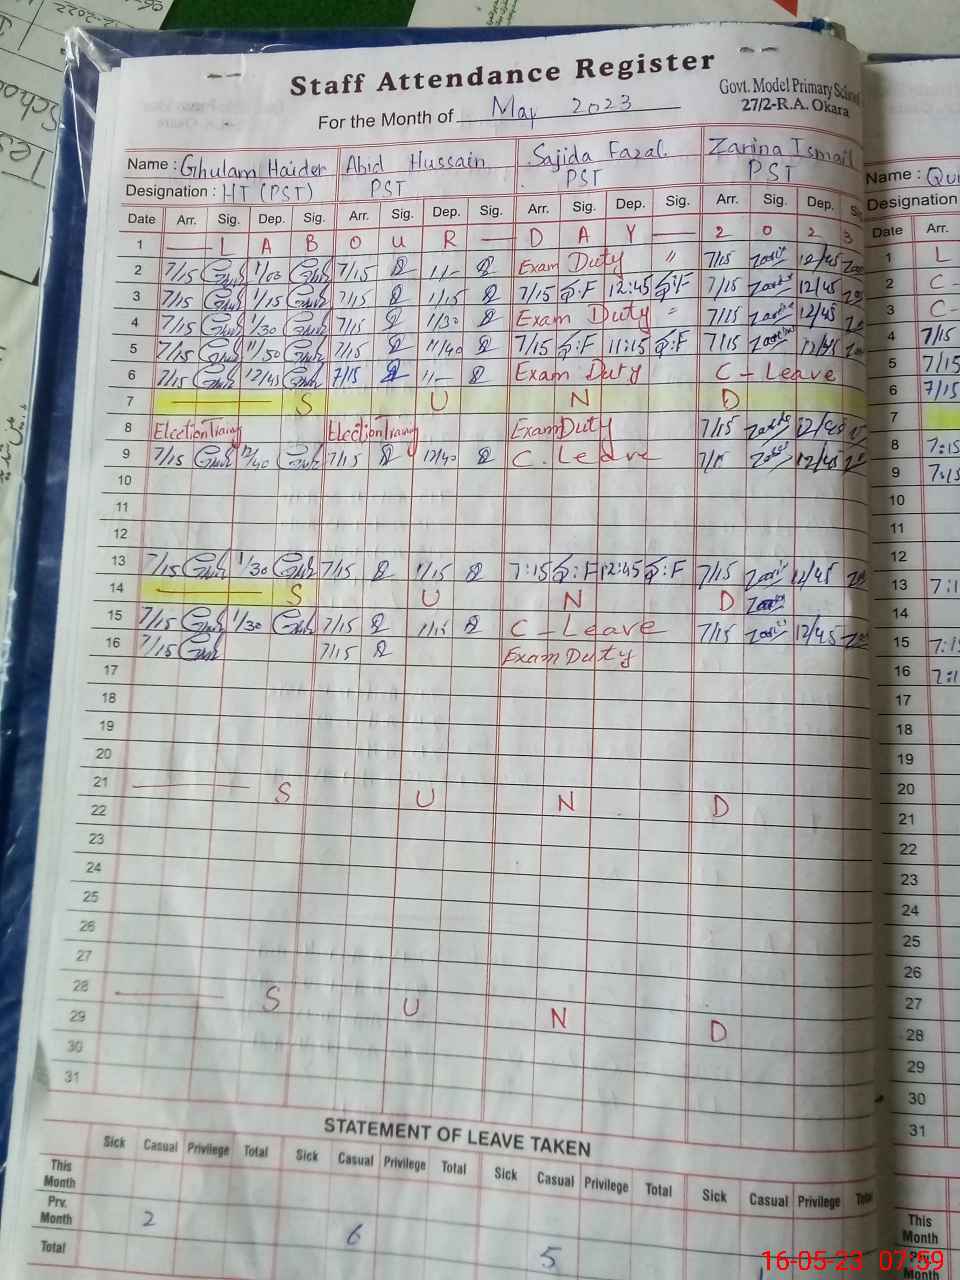 Staff Attendance Register
Govt. Model Primary School
27/2-R.A. Okara
For the Month of May 2023
Name : Ghulam Haider Abid Hussain Sajida Fazal Zarina Ismail
Designation : HT (PST) PST PST PST
Date Arr. Sig. Dep. Sig. Arr. Sig. Dep. Sig. Arr. Sig. Dep. Sig. Arr. Sig. Dep.
1 — L A B O U R — D A Y — 2 0 2 3
2 7/15 1/00 7/15 1/- Exam Duty " 7/15 12/45
3 7/15 1/15 7/15 1/15 7/15 S:F 12:45 S:F 7/15 12/45
4 7/15 1/30 7/15 1/30 Exam Duty " 7/15 12/45
5 7/15 11/50 7/15 11/40 7/15 S:F 11:15 S:F 7/15 12/45
6 7/15 12/45 7/15 1/- Exam Duty C - Leave
7 — S U N D
8 Election Traing Election Traing Exam Duty 7/15 12/45
9 7/15 12/40 7/15 12/40 C. Leave 7/15 12/45
10
11
12
13 7/15 1/30 7/15 1/15 7:15 S:F 12:45 S:F 7/15 12/45
14 — S U N D
15 7/15 1/30 7/15 1/15 C - Leave 7/15 12/45
16 7/15 7/15 Exam Duty
17
18
19
20
21 — S U N D
22
23
24
25
26
27
28 — S U N D
29
30
31
STATEMENT OF LEAVE TAKEN
Sick Casual Privilege Total Sick Casual Privilege Total Sick Casual Privilege Total Sick Casual Privilege Total
This Month
Prv. Month 2 6 5
Total
Name : Qu
Designation
Date Arr.
1 L
2 C -
3 C -
4 7/15
5 7/15
6 7/15
7
8 7:15
9 7:15
10
11
12
13 7:1
14
15 7:1
16 7:1
17
18
19
20
21
22
23
24
25
26
27
28
29
30
31
This Month
Prv. Month
16-05-23 07:59